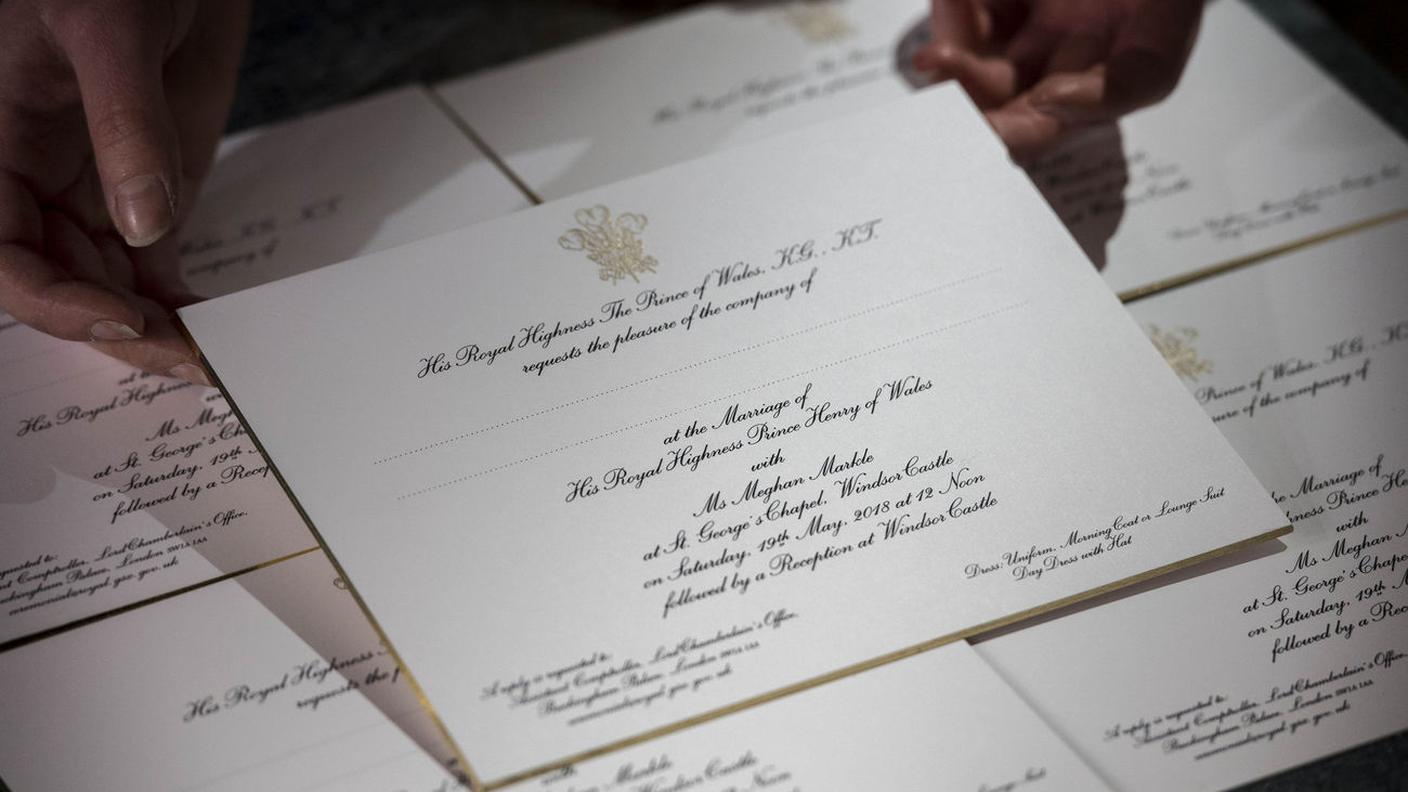 His Royal Highness The Prince of Wales, K.G., K.T.
requests the pleasure of the company of
at the Marriage of
His Royal Highness Prince Henry of Wales
with
Ms Meghan Markle
at St. George's Chapel, Windsor Castle
on Saturday, 19th May, 2018 at 12 Noon
followed by a Reception at Windsor Castle
Dress: Uniform, Morning Coat or Lounge Suit
Day Dress with Hat
A reply is requested to:
Assistant Comptroller, Lord Chamberlain's Office,
Buckingham Palace, London SW1A 1AA
company of
His Royal Highness
Ms Megh
at St. George's Cha
on Saturday, 19th M
followed by a Recep
quested to:
Comptroller, Lord Chamberlain's Office,
London SW1A 1AA
His Royal Highness
requests the p
Prince of Wales, K.G., K.T.
sure of the company of
he Marriage of
hness Prince He
with
Ms Meghan M
at St. George's Chape
on Saturday, 19th M
followed by a Rece
A reply is requested to:
Assistant Comptroller, Lord Chamberlain's Office,
Buckingham Palace, London SW1A 1AA
with
Markle
Windsor Castle
Noon
Suit